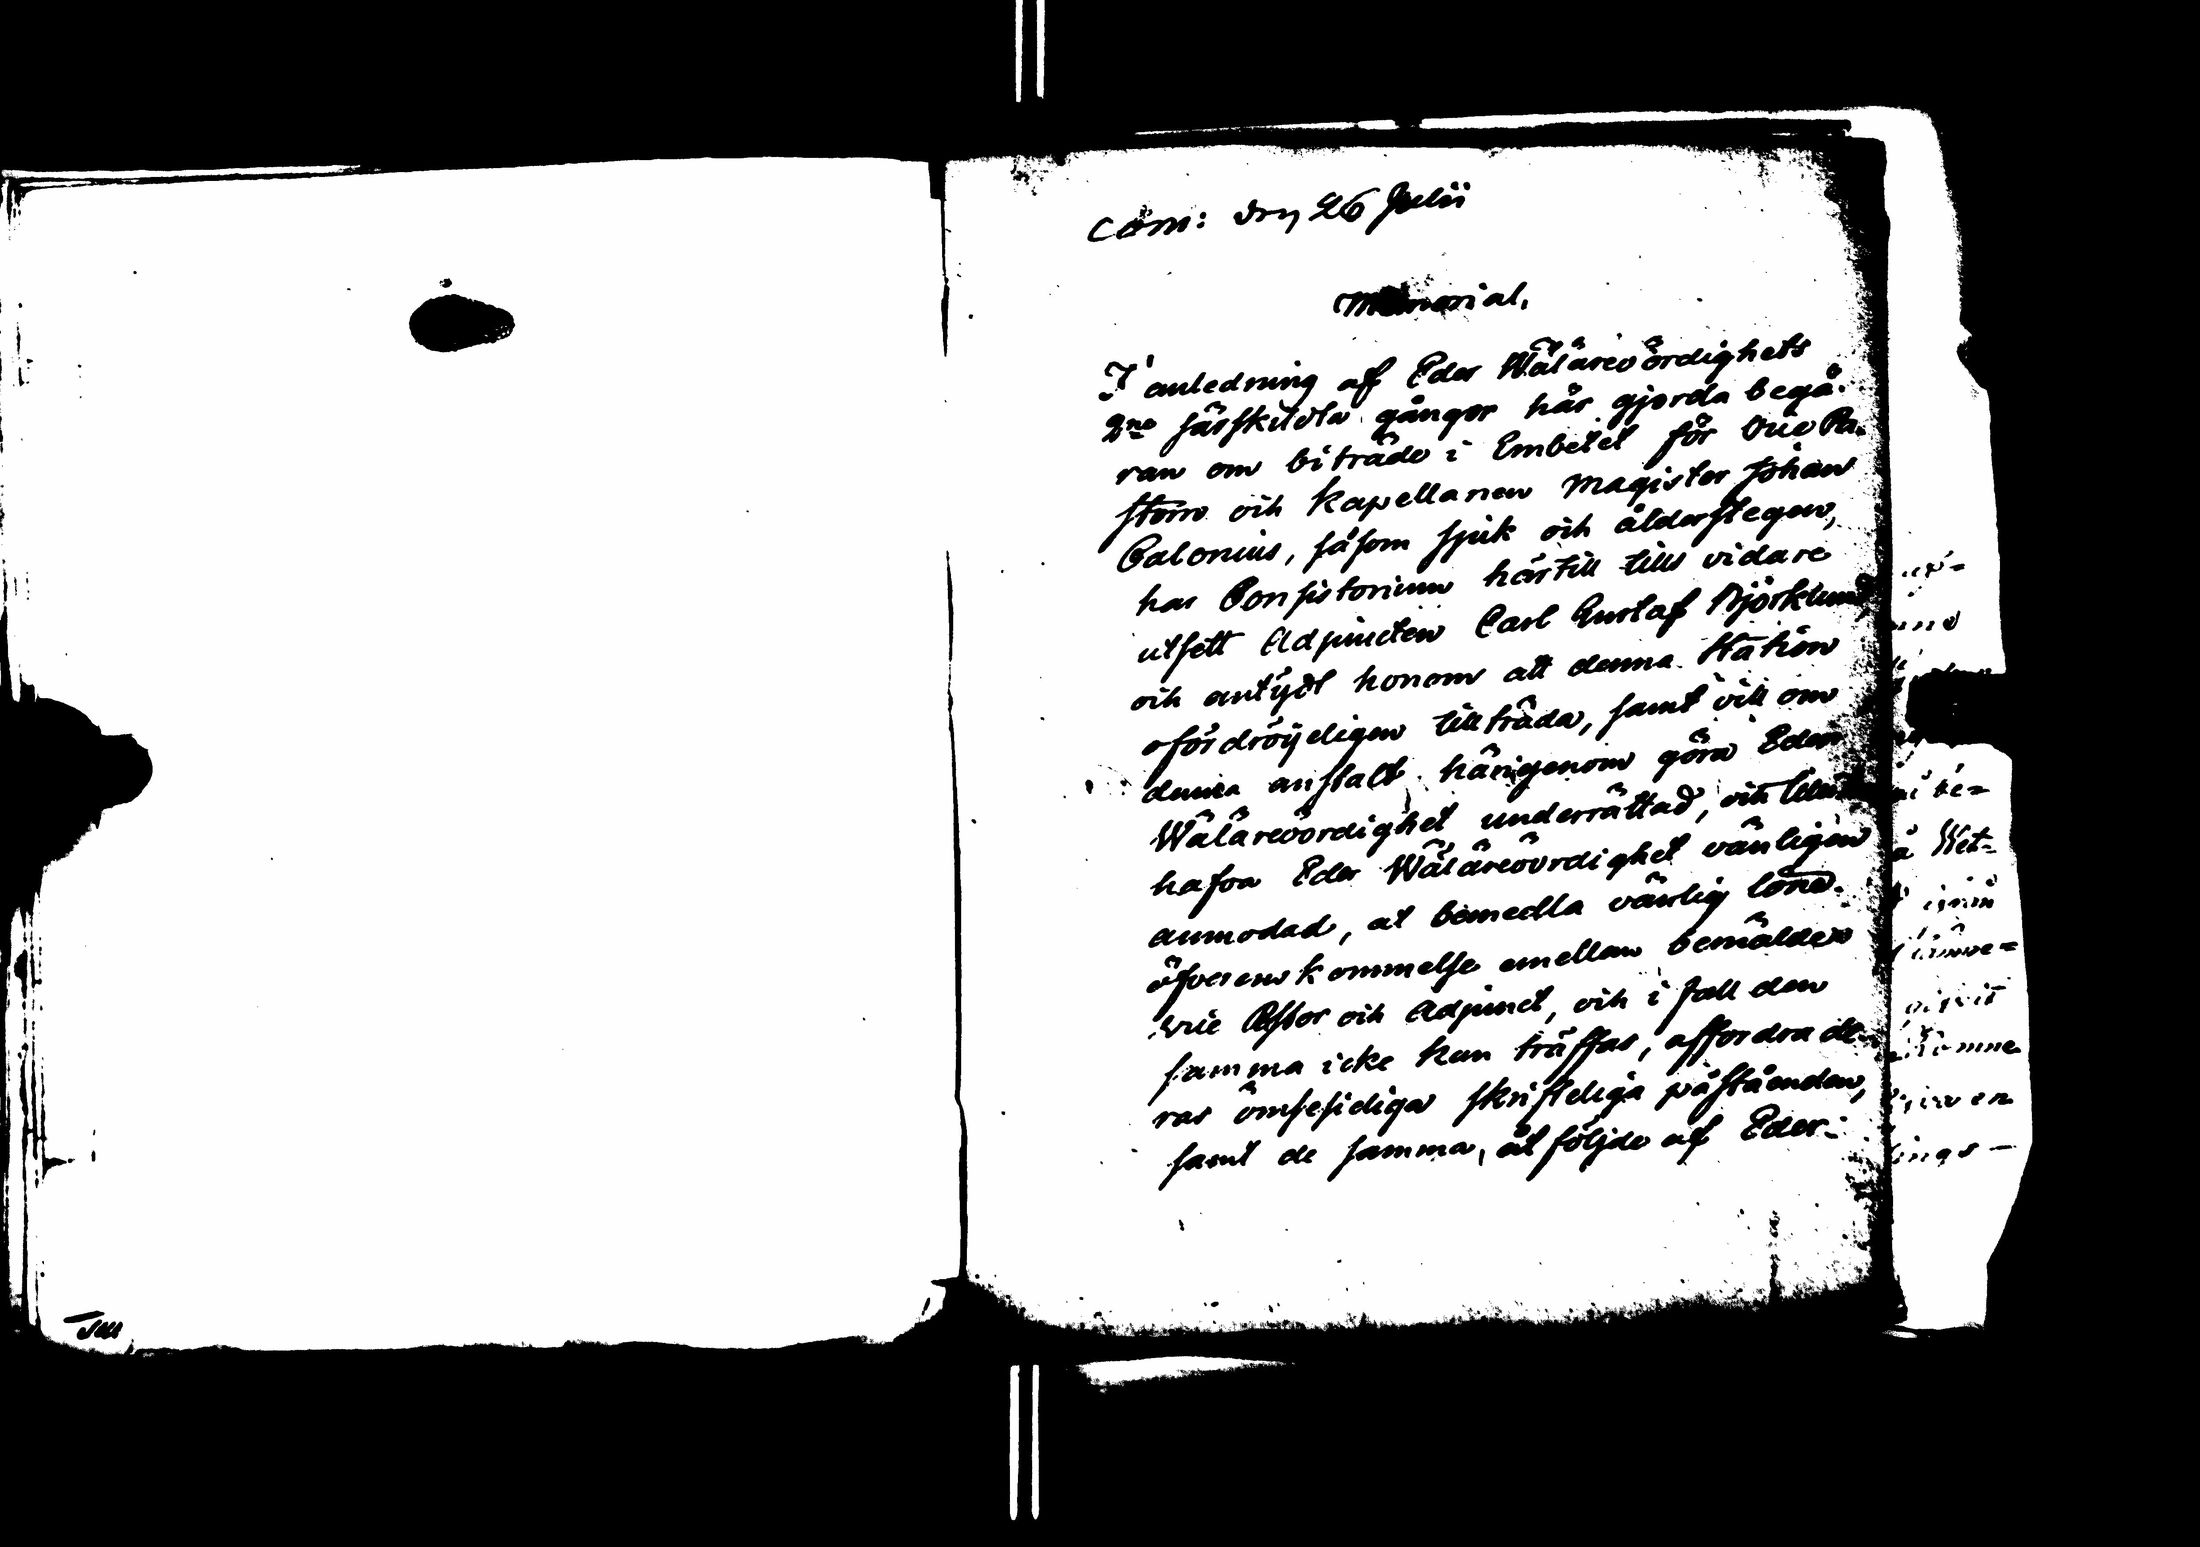 Com: den 26 Julii
Memorial.
I anledning af Eder Wälärevördighets
2ne särskildta gånger här gjorda begä-
ran om biträde i Embetet för Vice Pa-
storn och Kapellanen Magister Johan
Calonius, såsom sjuk och ålderstegen,
har Consistorium härtill tills vidare
utsett Adjuncten Carl Gustaf Björklund
och antydt honom att denna station
ofördröjeligen tillträda, samt vill om
denna anstalt härigenom göra Eder
Wälärevördighet underrättad, och
hafva Eder Wälärevördighet vänligen
anmodad, at bemedla vänlig löne-
öfverenskommelse emellan bemälde
Vice Pastor och Adjunct, och i fall den
samma icke kan träffas, affordra de-
ras ömsesidiga skrifteliga påståenden,
samt de samma, åtföljde af Eder